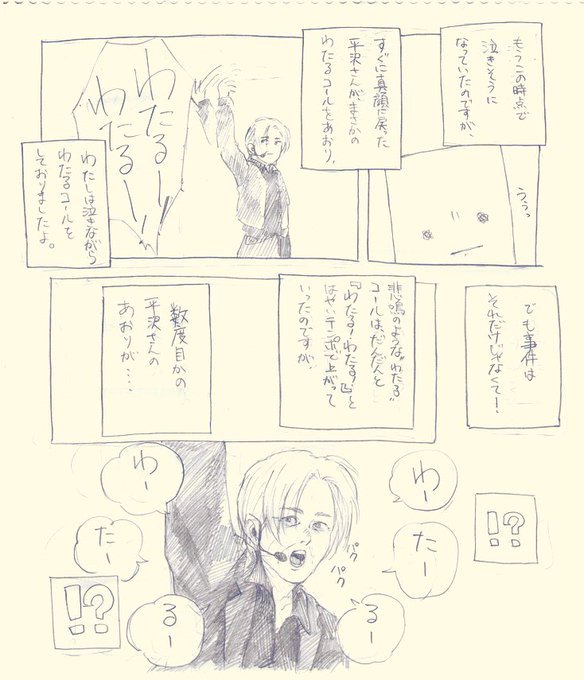 もうこの時点で
泣きそうに
なっていたのですが、
ううっ
すぐに真顔に戻った
平沢さんが、まさかの
わたるコールをあおり、
わたるー
わたるー!!
わたしは泣きながら
わたるコールを
しておりましたよ。
でも事件は
それだけじゃなくて!
悲鳴のような"わたる"
コールは、だんだんと
『わたる!わたる!』と
はやいテンポで上がって
いったのですが、
数度目かの
平沢さんの
あおりが・・・・
!?
わー
たー
るー
パク
パク
わー
たー
るー
!?